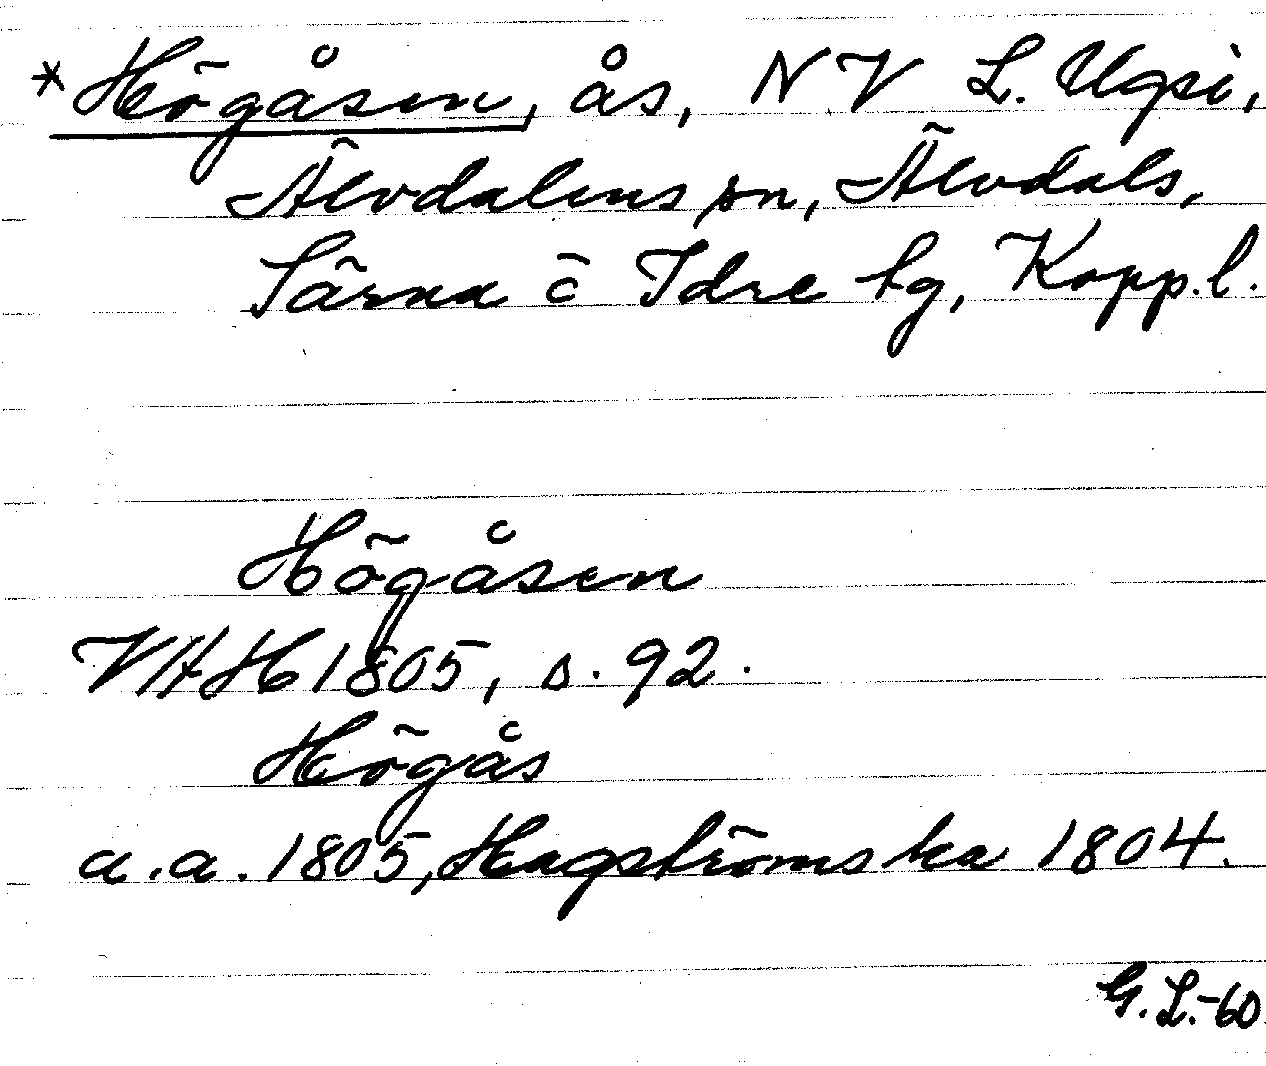 *Högåsen, ås, NV L. Ugsi,
Älvdalens sn, Älvdals,
Särna o Idre tg, Kopp.l.
Högåsen
VAH 1805, s. 92.
Högås
a.a. 1805, Hagströms ka 1804.
G.L.-60